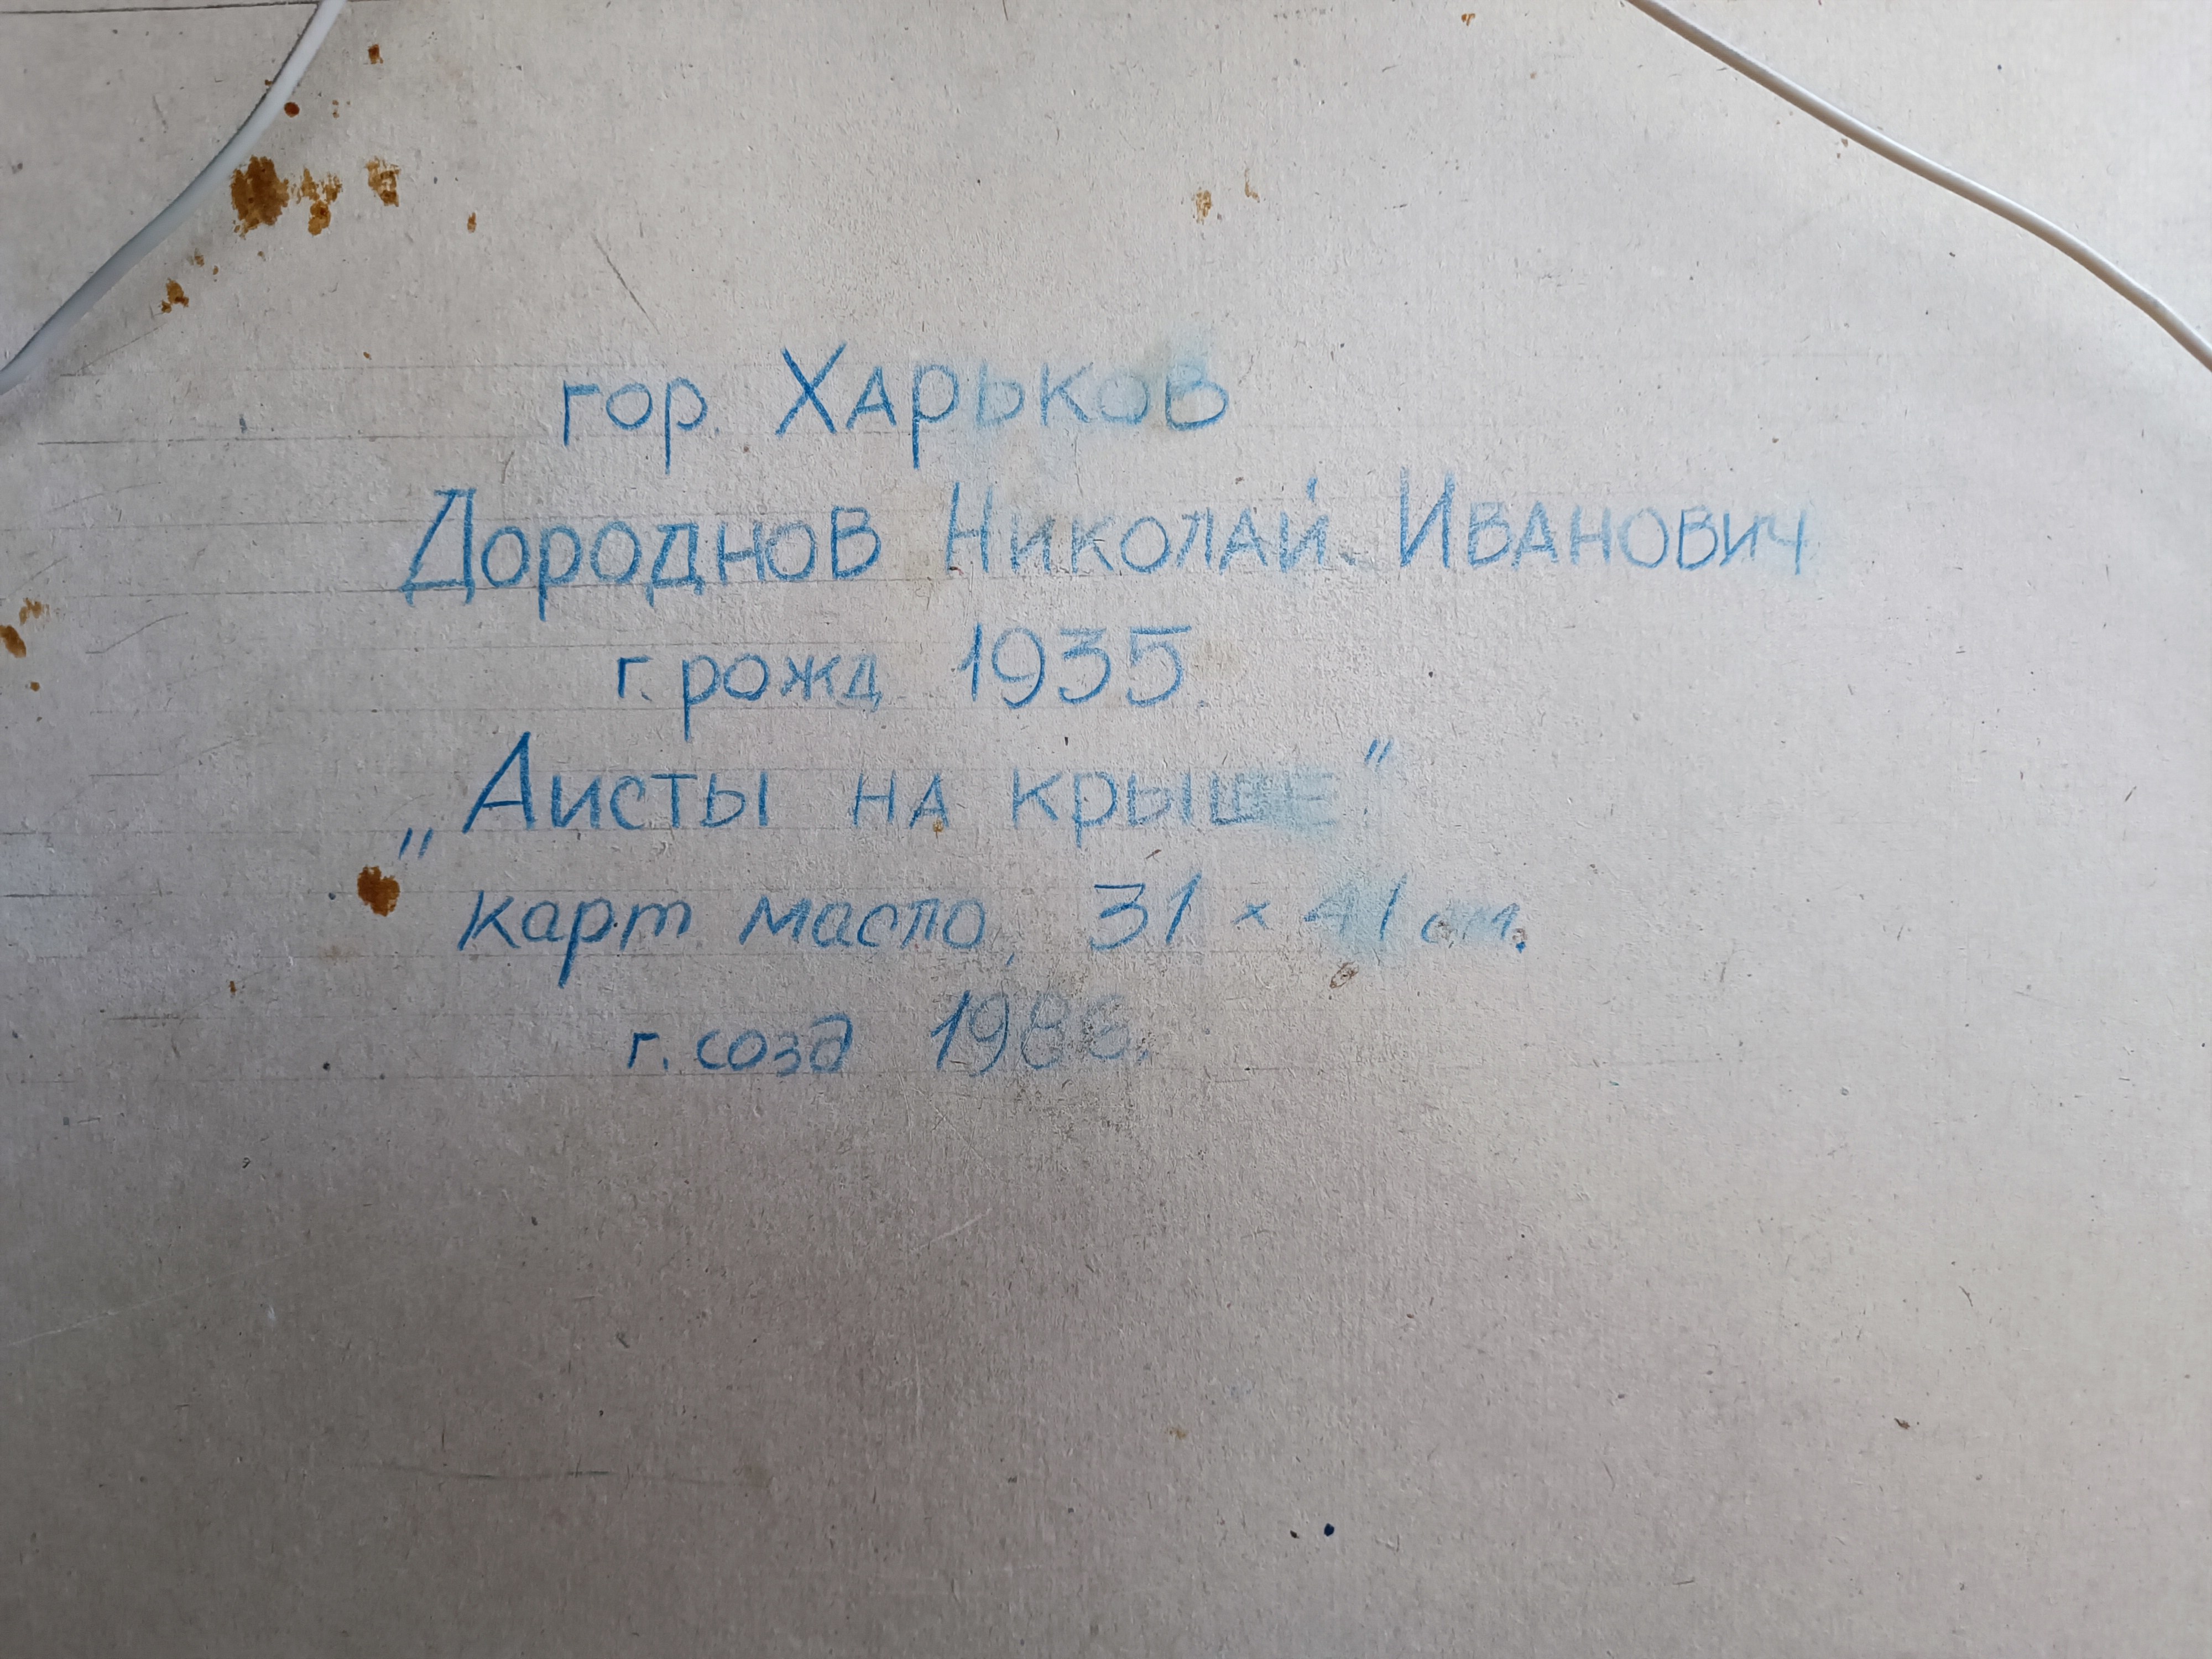 гор. Харьков
Дороднов Николай Иванович
г. рожд 1935.
„Аисты на крыше"
карт. масло, 31 × 41 см.
г. созд